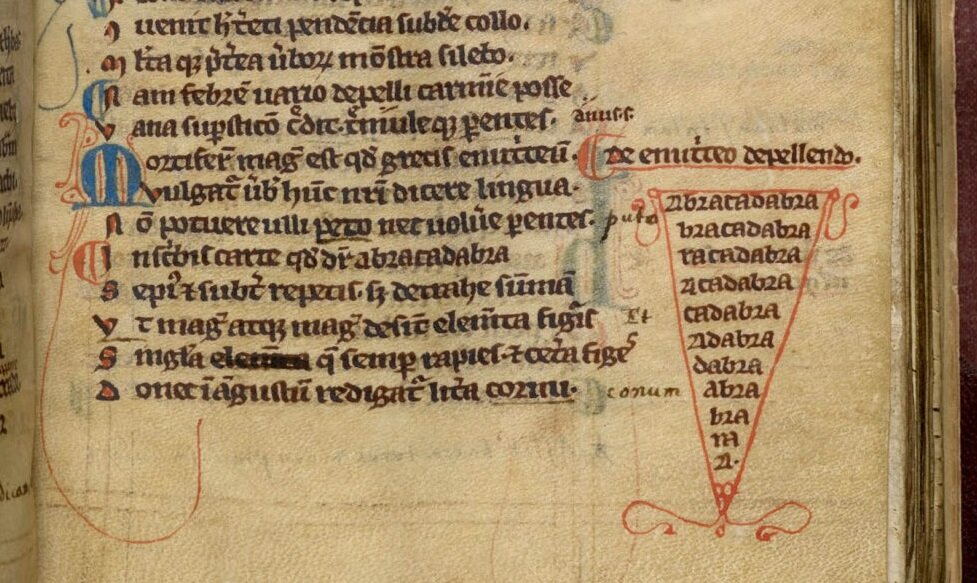 uenit h't ceti pendēcia subde collo.
M lta q; p̄tea ūboꝝ mōstra silebo.
N am febrē uario depelli carmīe posse
V ana sup̄sticō c̄dit t̄mule q; pentes.
M ortifeꝝ mag' est qd' grecis emitteū.
De emitteo depellendo.
Vulgat' ūb' hūc nr̄i dicere lingua.
N ō potuere ulli peto nec uolūe pentes.
puto
I nsc̄bis carte qd' dr̄ abracadabra
S epi' & subt' repetis. s; detrahe sūmā
V t mag' atq; mag' desīt elem̄ta figīs
Et
S ingl'a q̄ semp rapies. & cet'a fige
D onec ī āgustū redigat' lit'a cornu.
conum
abracadabra
bracadabra
racadabra
acadabra
cadabra
adabra
dabra
abra
bra
ra
a.